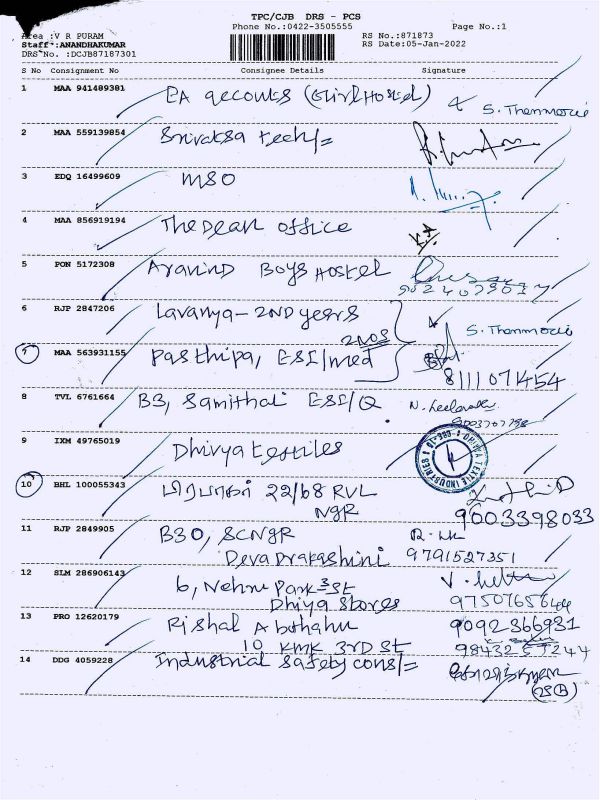 TPC/CJB DRS - PCS
Phone No.:0422-3505555 Page No.:1
Area :V R PURAM RS No.:871873
Staff :ANANDHAKUMAR RS Date:05-Jan-2022
DRS No. :DCJB87187301
S No Consignment No Consignee Details Signature
1 MAA 941489381 EA accounts (Girl Hostel) S. Thenmozhi
2 MAA 559139854 Srivatsa tech/=
3 EDQ 16499609 MSO
4 MAA 856919194 The Dean office
5 PON 5172308 Aravind Boys Hostel
6 RJP 2847206 Lavanya - 2ND years S. Thenmozhi
2NOS
7 MAA 563931155 Pasthipa, ESI/med
8111071454
8 TVL 6761664 B3, Samithai ESI/Q
9 IXM 49765019 Dhivya textiles
10 BHL 100055343 பிரபாகர் 22/68 RVL
NGR 9003398033
11 RJP 2849905 B30, SCNGR
Devaprakashini 9791527351
12 SLM 286906143 6, Nehru Park 3rd St
Dhiya Stores
13 PRO 12620179 Rishal 9092366931
10 KMK 3RD St
14 DDG 4059228 Industrial Safety cons/=